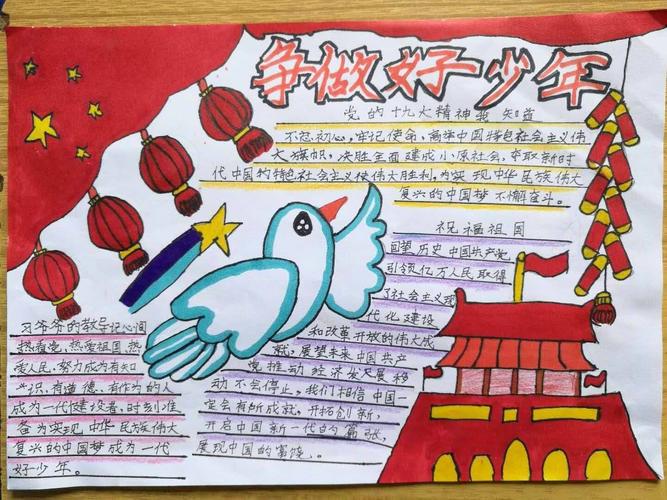 争做好少年
党的十九大精神我知道
不忘初心,牢记使命,高举中国特色社会主义伟
大旗帜,决胜全面建成小康社会,夺取新时
代中国特色社会主义伟大胜利,为实现中华民族伟大
复兴的中国梦不懈奋斗。
祝福祖国
回望历史中国共产党
引领亿万人民取得
了社会主义现
代化建设
和改革开放的伟大成
就,展望未来中国共产
党推动经济发展移
动不会停止,我们相信中国一
定会有所成就,开拓创新,
开启中国新一代的富强,
展现中国的富饶。
习爷爷的教导记心间
热爱党、热爱祖国、热
爱人民、努力成为有知
识、有道德、有作为的人
成为一代建设者,时刻准
备为实现中华民族伟大
复兴的中国梦成为一代
好少年。